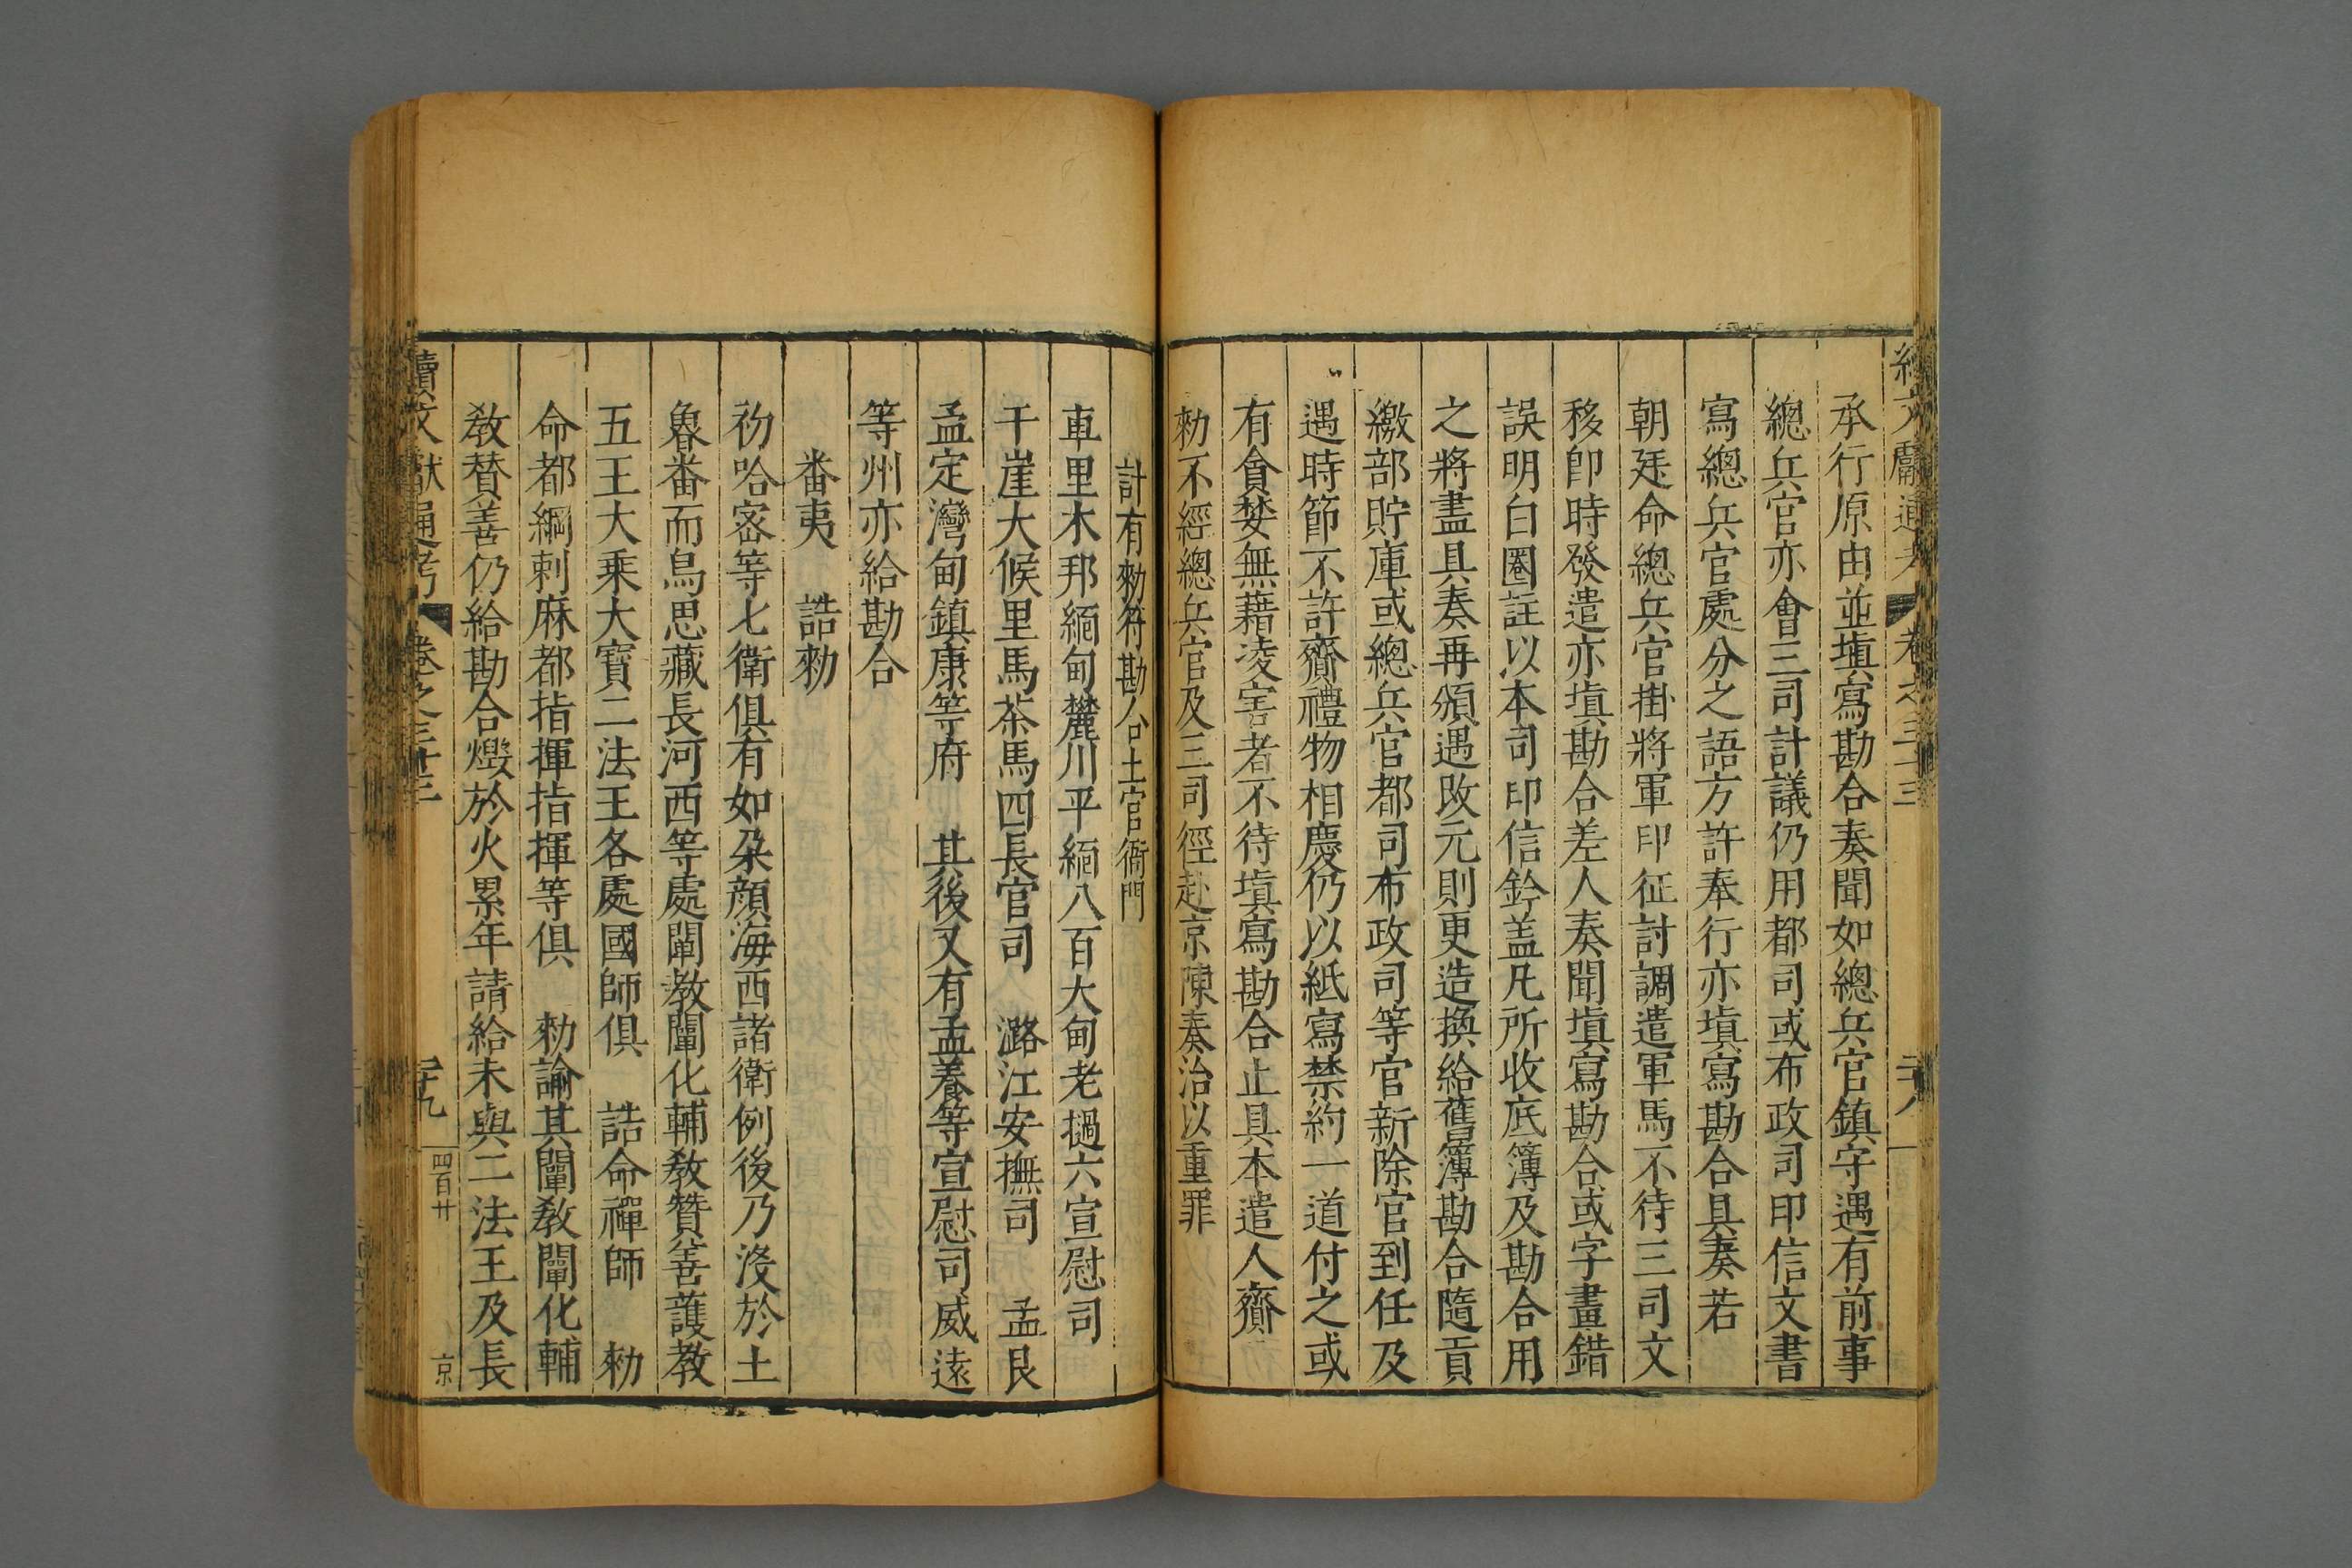 承行原由並塡寫勘合奏聞如總兵官鎮守遇有前事
總兵官亦會三司計議仍用都司或布政司印信文書
寫總兵官處分之語方許奉行亦塡寫勘合具奏若
朝廷命總兵官掛將軍印征討調遣軍馬不待三司文
移卽時發遣亦塡勘合差人奏聞塡寫勘合或字畫錯
誤明白圈註以本司印信鈐盖凡所收底簿及勘合用
之將盡具奏再頒遇改元則更造換給舊簿勘合隨貢
繳部貯庫或總兵官都司布政司等官新除官到任及
遇時節不許齎禮物相慶仍以紙寫禁約一道付之或
有貪婪無藉凌害者不待塡寫勘合止具本遣人齎
勑不經總兵官及三司徑赴京陳奏治以重罪
計有勑符勘合土官衙門
車里木邦緬甸麓川平緬八百大甸老撾六宣慰司
干崖大候里馬茶馬四長官司 潞江安撫司 孟艮
孟定灣甸鎮康等府 其後又有孟養等宣慰司威遠
等州亦給勘合
番夷 誥勑
初哈宻等七衛俱有如朶顔海西諸衛例後乃沒於土
魯番而烏思藏長河西等處闡教闡化輔教贊善護教
五王大乘大寳二法王各處國師俱 誥命禪師 勑
命都綱剌麻都指揮指揮等俱 勑諭其闡敎闡化輔
敎賛善仍給勘合燬於火累年請給未與二法王及長
續文獻通考 卷之三十三 二十九 四百廿 京